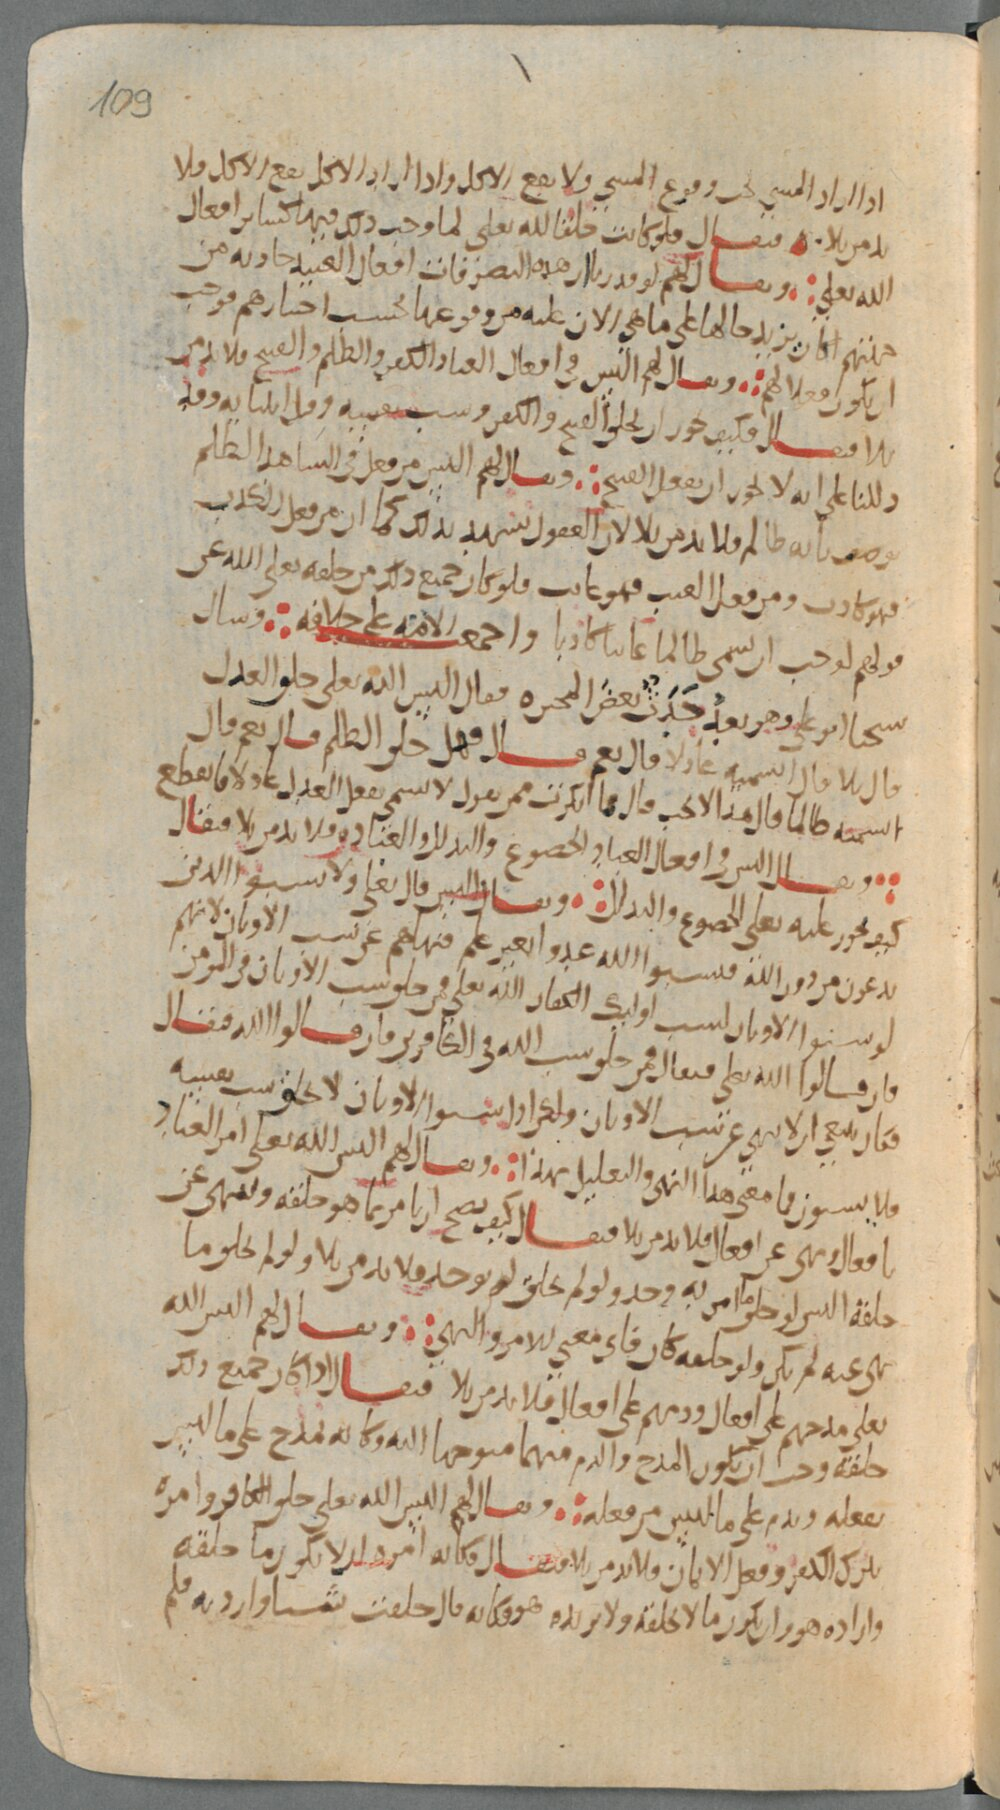 109
اذا اراد المشي يجب وقوع المشي ولا يقع الاكل واذا اراد الاكل يقع الاكل ولا
بد من بلا فيقال فلو كانت خلقا لله تعلى لما وجب ذلك فيها كسائر افعال
الله تعلى ويقال لهم لو قدرنا ان هذه التصرفات افعال العبيد حادثه من
جهتهم اكان يزيد حالها على ما هى الان عليه من وقوعها بحسب اختيارهم فوجب
ان يكون فعلا لهم ويقال لهم اليس في افعال العباد الكفر والظلم والقبيح فلا بد من
بلا فيقال فكيف يجوز ان يخلق القبيح والكفر وسب نفسه وقتل انبيايه وقد
دللنا على انه لا يجوز ان يفعل القبيح ويقال لهم اليس من فعل في الشاهد الظلم
يوصف بأنه ظالم فلا بد من بلا لان العقول تشهد بذلك كما ان من فعل الكذب
فهو كاذب ومن فعل العبث فهو عابث فلو كان جميع ذلك من خلقه تعلى الله عن
قولهم لوجب ان يسمى ظالما عابثا كاذبا واجمعت الامه على خلافه وسال
شيخنا ابو على وهو بعد حدث بعض المجبره فقال اليس الله تعلى خلق العدل
قال بلا قال اتسميه عادلا قال نعم قال فهل خلق الظلم قال نعم قال
اتسميه ظالما قال هذا لا يجب قال فما انكرت ممن يقول لا يسمى بفعل العدل عادلا فانقطع
ويقال اليس في افعال العباد الخضوع والتذلل والعباده فلا بد من بلا فيقال
كيف يجوز عليه تعلى الخضوع والتذلل ويقال اليس قال تعلى ولا تسبوا الذين
يدعون من دون الله فيسبوا الله عدوا بغير علم فنهاهم عن سب الاوثان لانهم
لو سبوا الاوثان لسب اوليك الكفار الله تعلى فمن خلق سب الاوثان في المومن
فان قالوا الله تعلى فيقال فمن خلق سب الله في الكافرين فان قالوا الله فيقال
فكان ينبغي ان لا ينهى عن سب الاوثان ولكن اذا سبوا الاوثان لا يخلق سب نفسه
فلا يسبون فما معنى هذا النهى والتعليل بهذا ويقال لهم اليس الله تعلى امر العباد
بافعال ونهى عن افعال فلا بد من بلا فيقال كيف يصح ان يامر بما هو خلقه وينهى عن
خلقه اليس لو خلق ما امر به وجد ولو لم يخلق لم يوجد فلا بد من بلا ولو لم يخلق ما
نهى عنه لم يكن ولو خلقه كان فاى معنى للامر والنهى ويقال لهم اليس الله
تعلى مدحهم على افعال وذمهم على افعال فلا بد من بلا فيقال اذا كان جميع ذلك
خلقه وجب ان يكون المدح والذم منهما متوجها اليه وكانه يمدح على ما ليس
بفعله ويذم على ما ليس من فعله ويقال لهم اليس الله تعلى خلق الكافر وامره
بترك الكفر وفعل الايمان فلا بد من بلا فيقال فكانه امره ان لا يكون ما خلقه
واراده هو وان يكون ما لا يخلقه ولا يريده هو وكانه قال خلقت شيئا واردته فلم